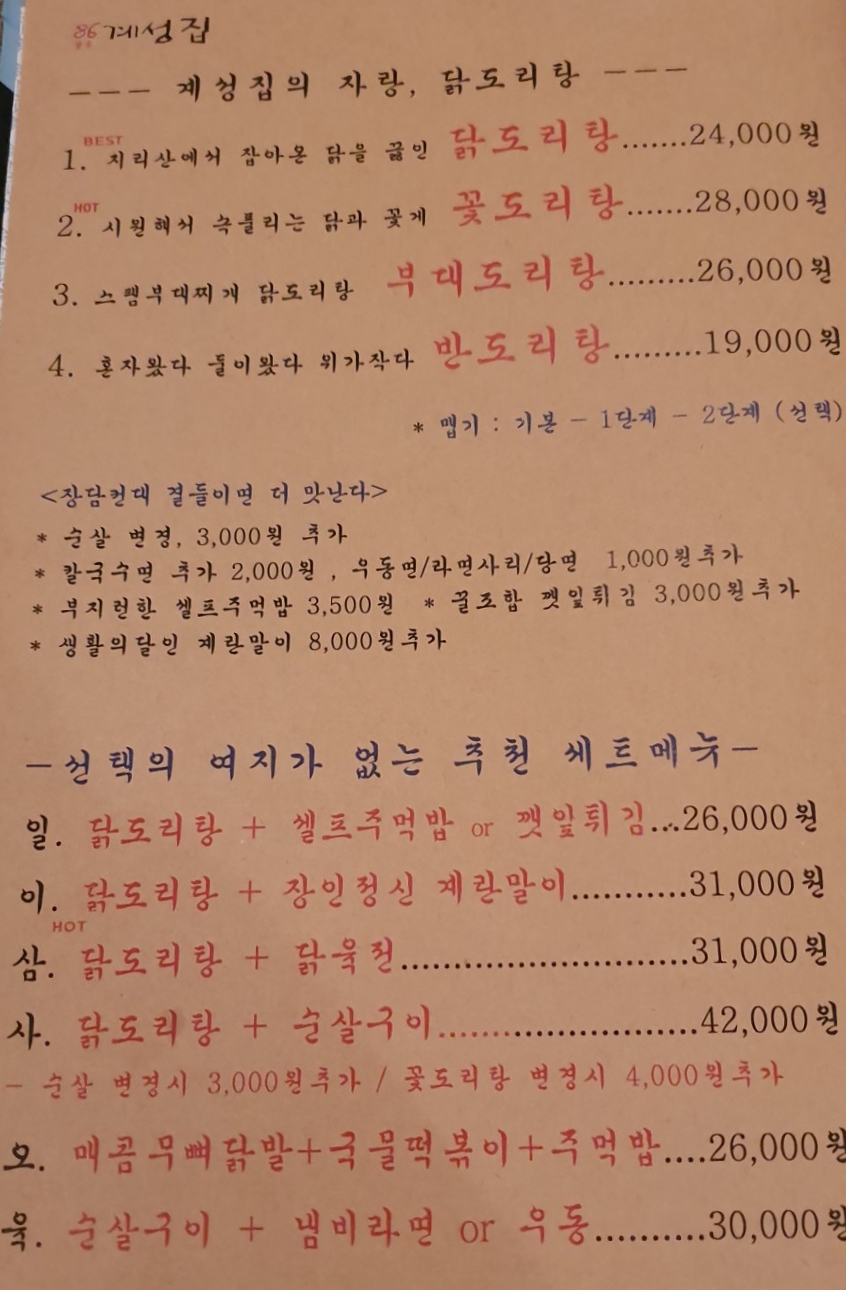 86 계성집
--- 계성집의 자랑, 닭도리탕 ---
BEST
1. 지리산에서 잡아온 닭을 끓인 닭도리탕.......24,000원
HOT
2. 시원해서 속풀리는 닭과 꽃게 꽃도리탕.......28,000원
3. 스팸부대찌개 닭도리탕 부대도리탕.........26,000원
4. 혼자왔다 둘이왔다 위가작다 반도리탕.........19,000원
* 맵기 : 기본 - 1단계 - 2단계 (선택)
<장담컨대 곁들이면 더 맛난다>
* 순살 변경, 3,000원 추가
* 칼국수면 추가 2,000원 , 우동면/라면사리/당면 1,000원추가
* 부지런한 셀프주먹밥 3,500원 * 꿀조합 깻잎튀김 3,000원추가
* 생활의달인 계란말이 8,000원추가
-선택의 여지가 없는 추천 세트메뉴-
일. 닭도리탕 + 셀프주먹밥 or 깻잎튀김....26,000원
이. 닭도리탕 + 장인정신 계란말이...........31,000원
HOT
삼. 닭도리탕 + 닭육전............................31,000원
사. 닭도리탕 + 순살구이.........................42,000원
- 순살 변경시 3,000원추가 / 꽃도리탕 변경시 4,000원추가
오. 매콤무뼈닭발+국물떡볶이+주먹밥....26,000원
육. 순살구이 + 냄비라면 or 우동..........30,000원